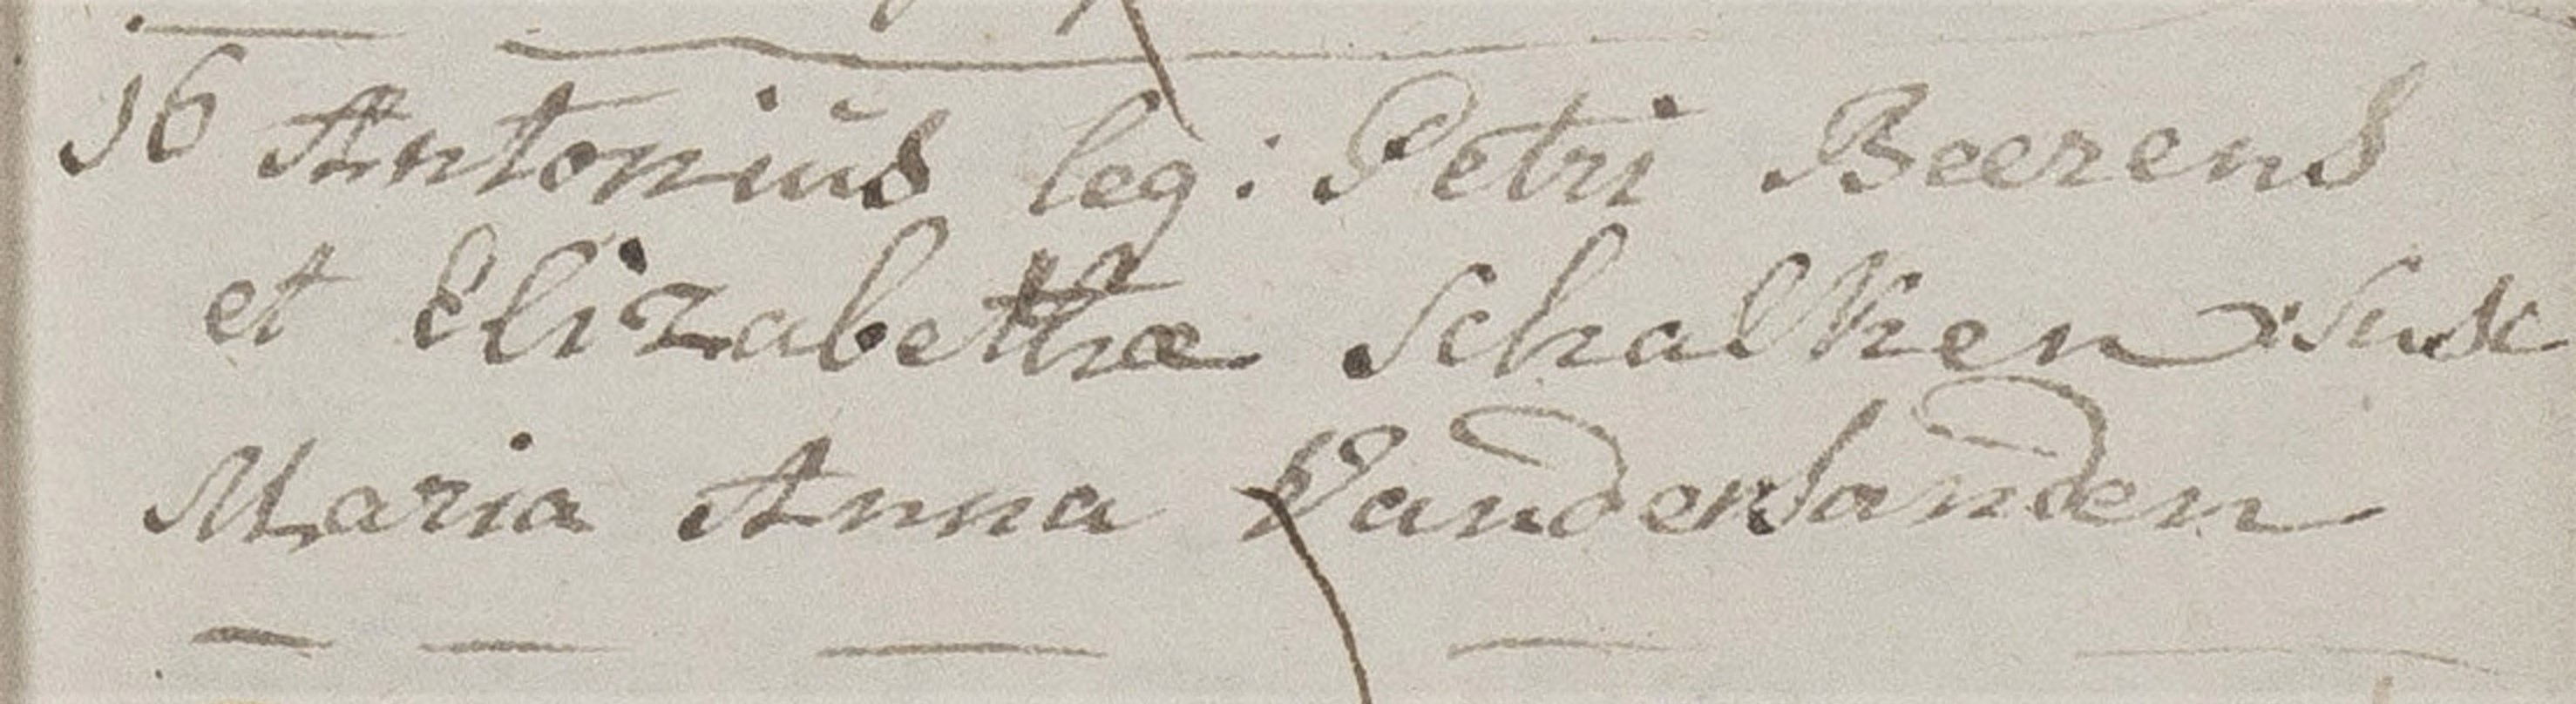 16 Antonius leg: Petri Beerens
et Elizabethæ Schalken Susc
Maria Anna Vandersanden